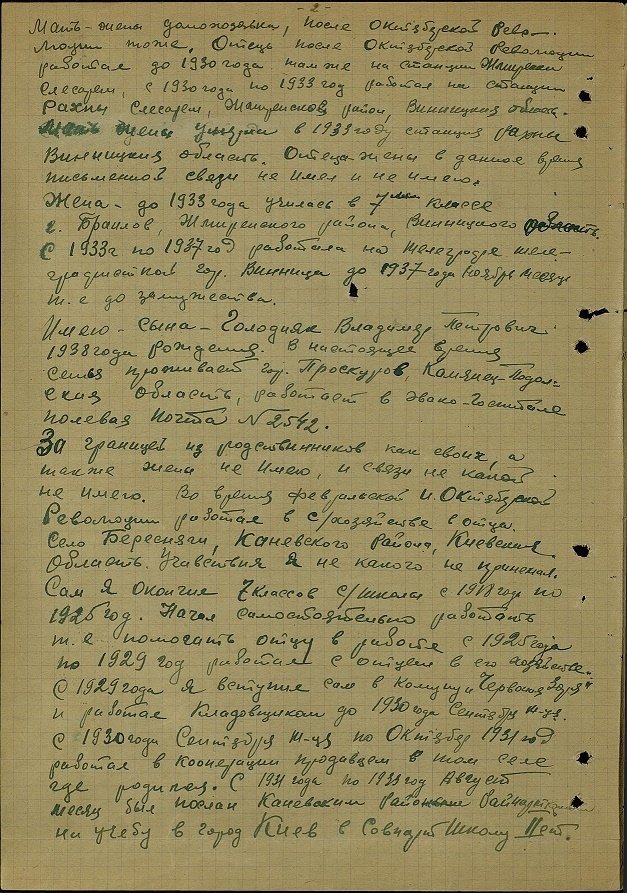 - 2 -
Мать-жены домохозяйка, после Октябрьской Рево-
люции тоже. Отец после Октябрьской Революции
работал до 1930 года там же на станции Жмиренки
слесарем, с 1930 года по 1933 год работал на станции
Рахны слесарем, Жмиренсков район, Винницкия область.
Мать жены умерла в 1933 году станция Рахны
Винницкия область. Отец жены в данное время
письменной связи не имел и не имею.
Жена - до 1933 года училась в 7 классе
г. Браилов, Жмиренского района, Винницкого область.
С 1933 г по 1937 год работала на телеграфе теле-
графисткой гор. Винница до 1937 года Ноября месяца
т. е до замужества.
Имею - сына - Голодняк Владимир Петрович
1938 года рождения. В настоящее время
семья проживает гор. Проскуров, Камянец-Подол-
ския область, работает в Эвако-Госпитале
полевая почта N 2542.
За границей из родственников как своих, а
также жены не имею, и связи не какой
не имею. Во время февральской и Октябрьской
Революции работал в с/хозяйстве в отца.
Село Бересняги, Каневского района, Киевския
область. Учавствия я не какого не принемал.
Сам я окончил 7 классов с/школы с 1918 год по
1925 год. Начал самостоятельно работать
т. е помогать отцу в работе с 1925 года
по 1929 год работал с отцем в его хозяйстве.
С 1929 года я вступил сам в Комуну "Червона Зоря"
и работал кладовщиком до 1930 года Сентября м-ца.
С 1930 года Сентября м-ца по Октябрь 1931 год
работал в кооперации продавцем в том селе
где родился. С 1931 года по 1933 год Август
месяц был послан Каневским Райпарткомом
на учебу в город Киев в Совпарт Школу